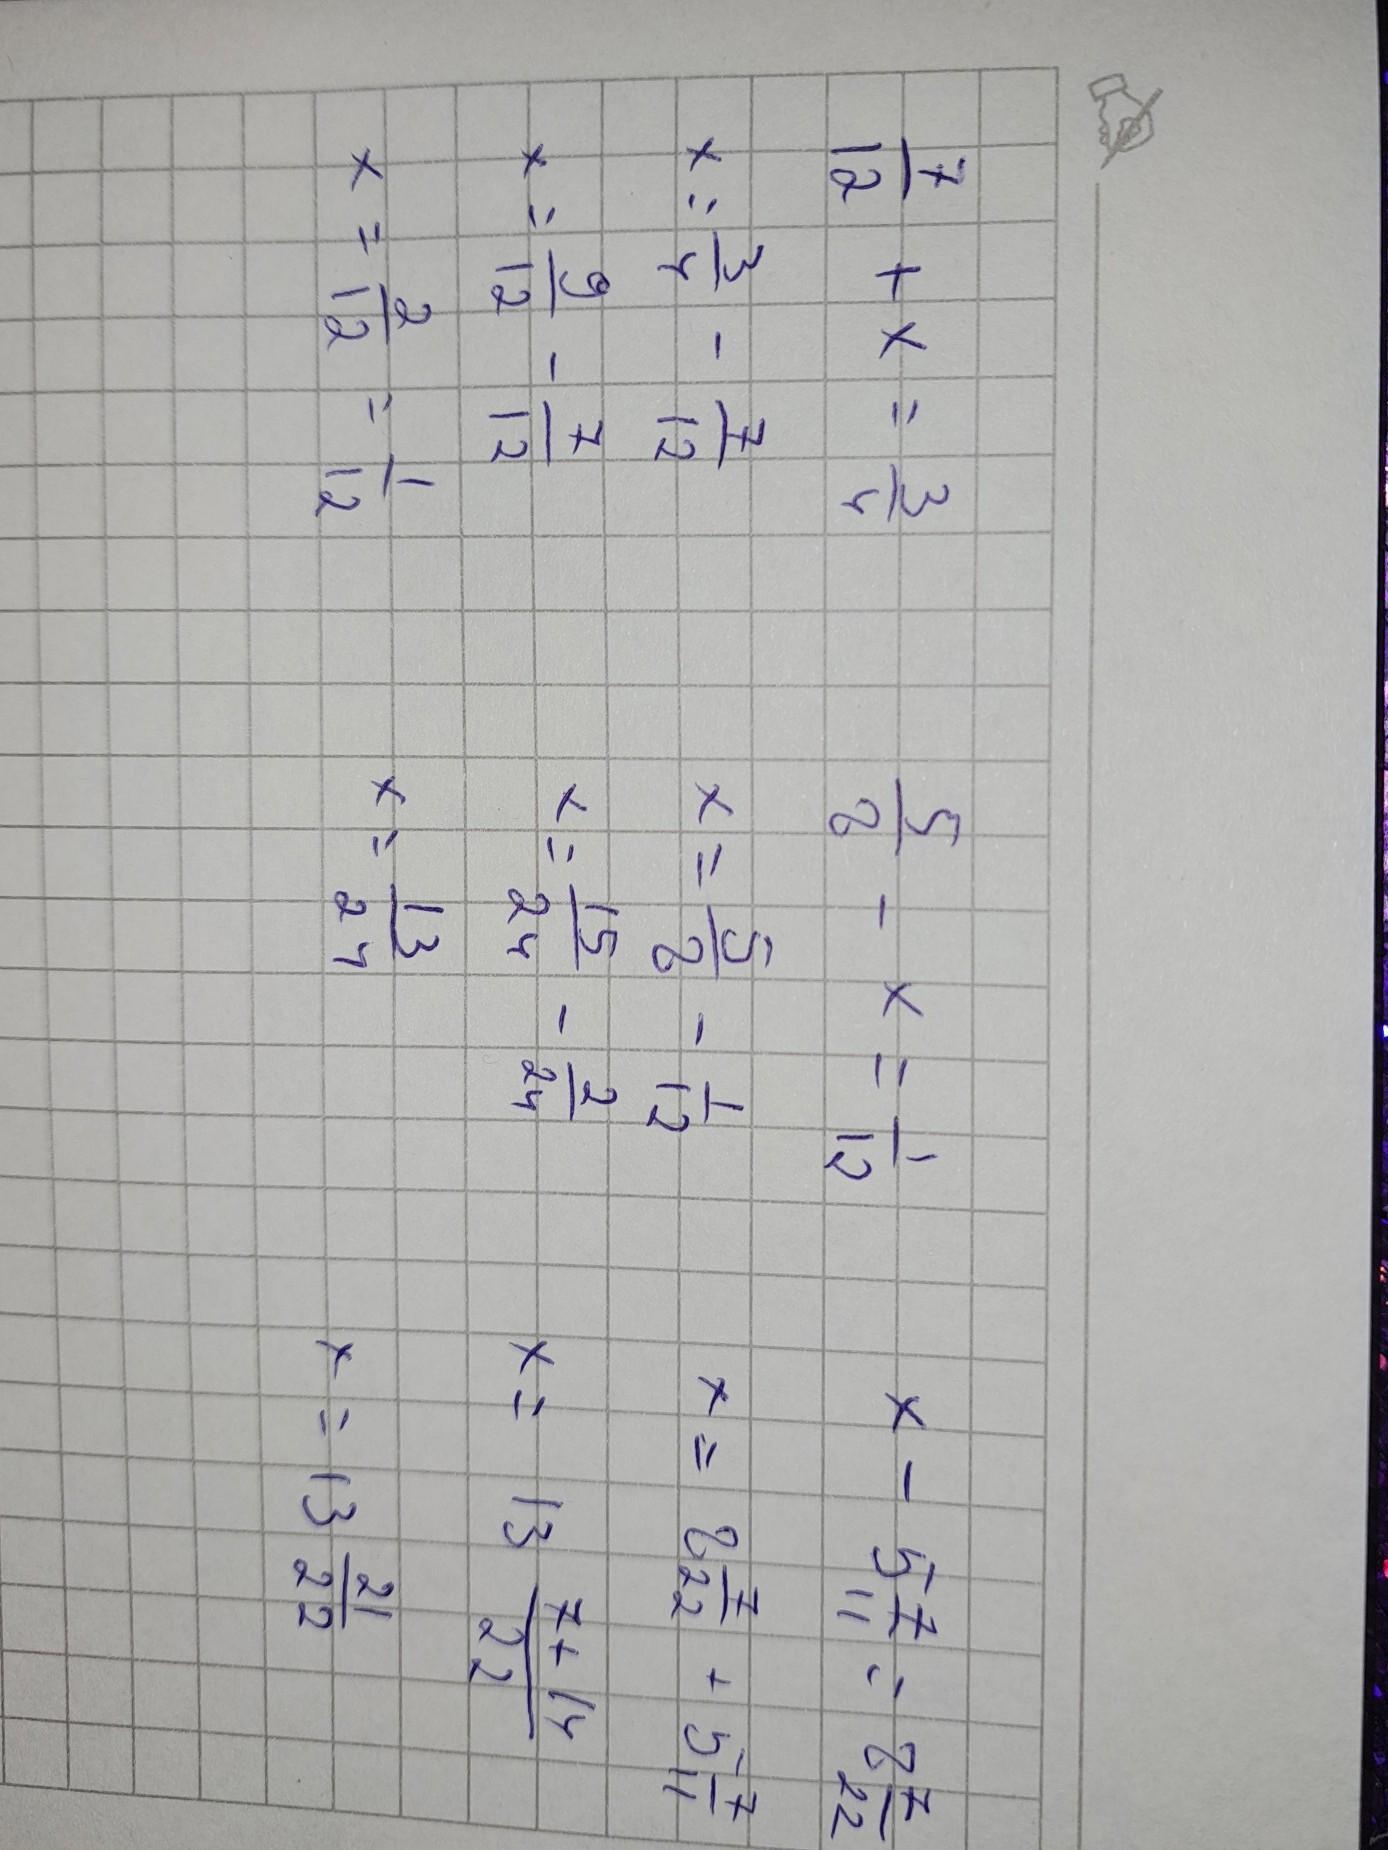 7/12 + x = 3/4
x = 3/4 - 7/12
x = 9/12 - 7/12
x = 2/12 = 1/12
5/8 - x = 1/12
x = 5/8 - 1/12
x = 15/24 - 2/24
x = 13/24
x - 5 7/11 = 8 7/22
x = 8 7/22 + 5 7/11
x = 13 7+14/22
x = 13 21/22